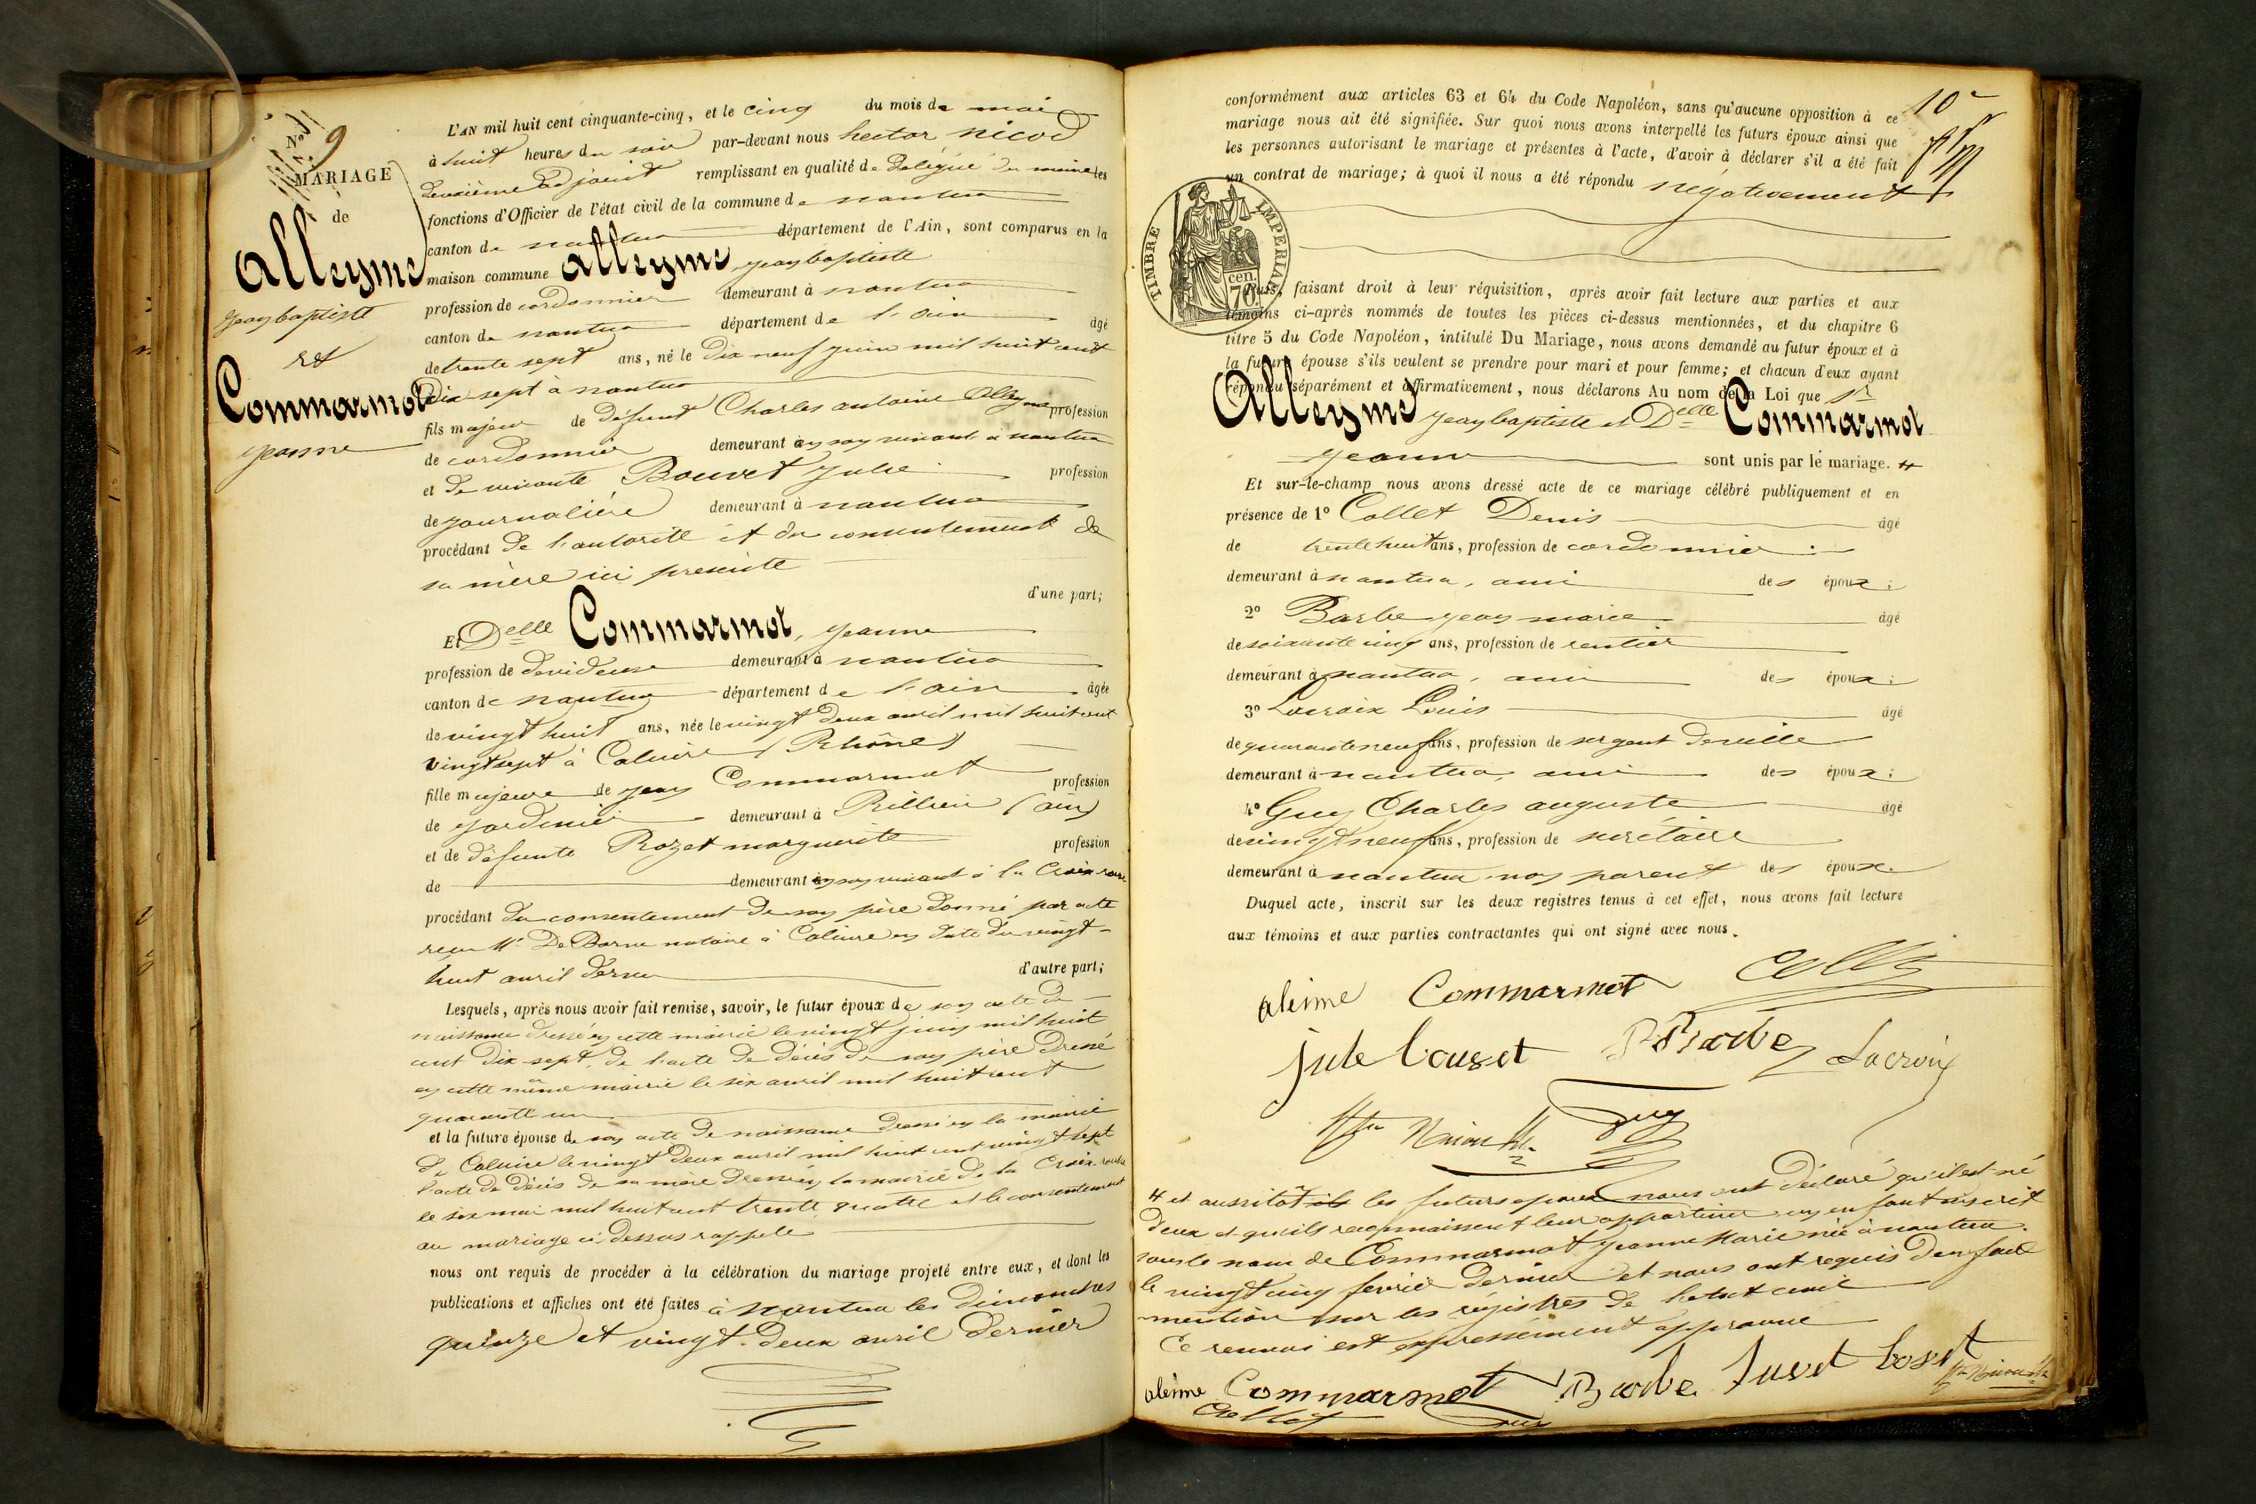 No 9
MARIAGE
de
Alleysme
Jean baptiste
et
Commarmot
Jeanne
L'AN mil huit cent cinquante-cinq, et le cinq du mois de mai
à huit heures du soir par-devant nous hector nicod
deuxième adjoint remplissant en qualité de Délégué du maire les
fonctions d'Officier de l'état civil de la commune de nantua
canton de nantua département de l'Ain, sont comparus en la
maison commune Alleysme Jean baptiste
profession de cordonnier demeurant à nantua
canton de nantua département de l'ain âgé
de trente sept ans, né le Dix neuf juin mil huit cent
Dix sept à nantua
fils majeur de défunt Charles antoine Alleysme profession
de cordonnier demeurant en son vivant à nantua
et de vivante Bouvet Julie profession
de journalière demeurant à nantua
procédant de l'autorité et du consentement de
sa mère ici présente
d'une part;
Et Delle Commarmot, Jeanne
profession de dévideuse demeurant à nantua
canton de nantua département de l'ain âgée
de vingt huit ans, née le vingt deux avril mil huit cent
vingt sept à Caluire (Rhône)
fille majeure de Jean Commarmot profession
de jardinier demeurant à Rillieu (ain)
et de défunte Rozet marguerite profession
de demeurant en son vivant à la Croix rousse
procédant du consentement de son père donné par acte
reçu Me De Borne notaire à Caluire en date du vingt-
huit avril dernier d'autre part;
Lesquels, après nous avoir fait remise, savoir, le futur époux de son acte de
naissance dressé en cette mairie le vingt juin mil huit
cent dix sept, de l'acte de décès de son père dressé
en cette même mairie le six avril mil huit cent
quarante un
et la future épouse de son acte de naissance dressé en la mairie
de Caluire le vingt deux avril mil huit cent vingt sept
l'acte de décès de sa mère dressé en la mairie de la Croix-rousse
le six mai mil huit cent trente quatre et le consentement
au mariage ci-dessus rappelé
nous ont requis de procéder à la célébration du mariage projeté entre eux, et dont les
publications et affiches ont été faites à nantua les dimanches
quinze et vingt-deux avril dernier
10e
conformément aux articles 63 et 64 du Code Napoléon, sans qu'aucune opposition à ce
mariage nous ait été signifiée. Sur quoi nous avons interpellé les futurs époux ainsi que
les personnes autorisant le mariage et présentes à l'acte, d'avoir à déclarer s'il a été fait
un contrat de mariage; à quoi il nous a été répondu négativement
TIMBRE IMPERIAL
cen.
70.
Nous, faisant droit à leur réquisition, après avoir fait lecture aux parties et aux
témoins ci-après nommés de toutes les pièces ci-dessus mentionnées, et du chapitre 6
titre 5 du Code Napoléon, intitulé Du Mariage, nous avons demandé au futur époux et à
la future épouse s'ils veulent se prendre pour mari et pour femme; et chacun d'eux ayant
répondu séparément et affirmativement, nous déclarons Au nom de la Loi que Sr
Alleysme Jean baptiste et Delle Commarmot
Jeanne sont unis par le mariage. #
Et sur-le-champ nous avons dressé acte de ce mariage célébré publiquement et en
présence de 1º Collet Denis âgé
de trente huit ans, profession de cordonnier
demeurant à nantua, ami des époux;
2º Barbe jean marie âgé
de soixante cinq ans, profession de rentier
demeurant à nantua, ami des époux;
3º Lacroix Louis âgé
de quarante neuf ans, profession de sergent de ville
demeurant à nantua, ami des époux;
4º Guy Charles auguste âgé
de vingt neuf ans, profession de secrétaire
demeurant à nantua non parent des époux.
Duquel acte, inscrit sur les deux registres tenus à cet effet, nous avons fait lecture
aux témoins et aux parties contractantes qui ont signé avec nous.
aleime Commarmot
Barbe Lacroix
Guy
# et aussitôt les futurs époux nous ont déclaré qu'il est né
deux et qu'ils reconnaissent leur appartenir un enfant inscrit
sous le nom de Commarmot Jeanne Marie née à nantua
le vingt cinq février dernier et nous ont requis d'en faire
mention sur les régistres de l'etat civil
Ce renvoi est expressément approuvé
aleime Commarmot Barbe
Collet Guy